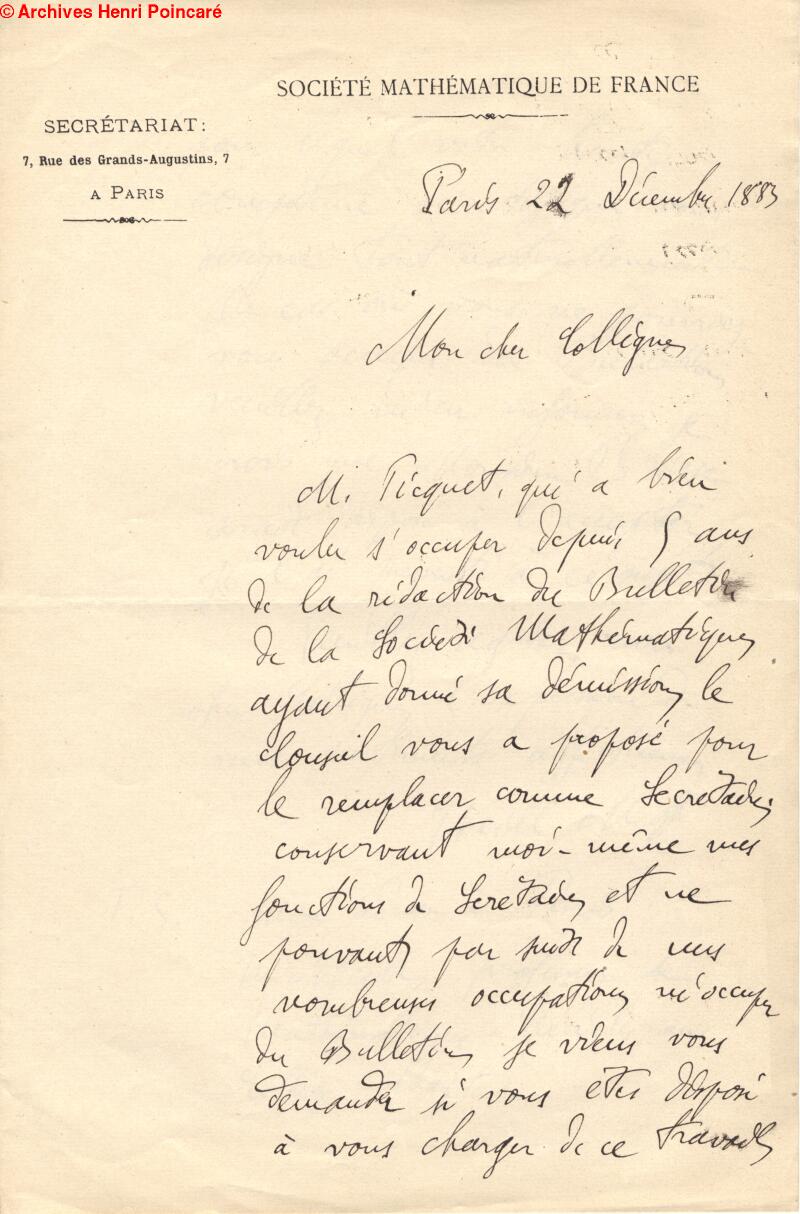 © Archives Henri Poincaré
SOCIÉTÉ MATHÉMATIQUE DE FRANCE
SECRÉTARIAT:
7, Rue des Grands-Augustins, 7
A PARIS
Paris 22 Décembre 1883
Mon cher Collègue,
M. Picquet, qui a bien
voulu s'occuper depuis 5 ans
de la rédaction du Bulletin
de la Société Mathématique,
ayant donné sa démission, le
Conseil vous a proposé pour
le remplacer comme Secrétaire,
conservant moi-même mes
fonctions de Secrétaire, et ne
pouvant, par suite de mes
nombreuses occupations, m'occuper
du Bulletin, je viens vous
demander si vous êtes disposé
à vous charger de ce travail,